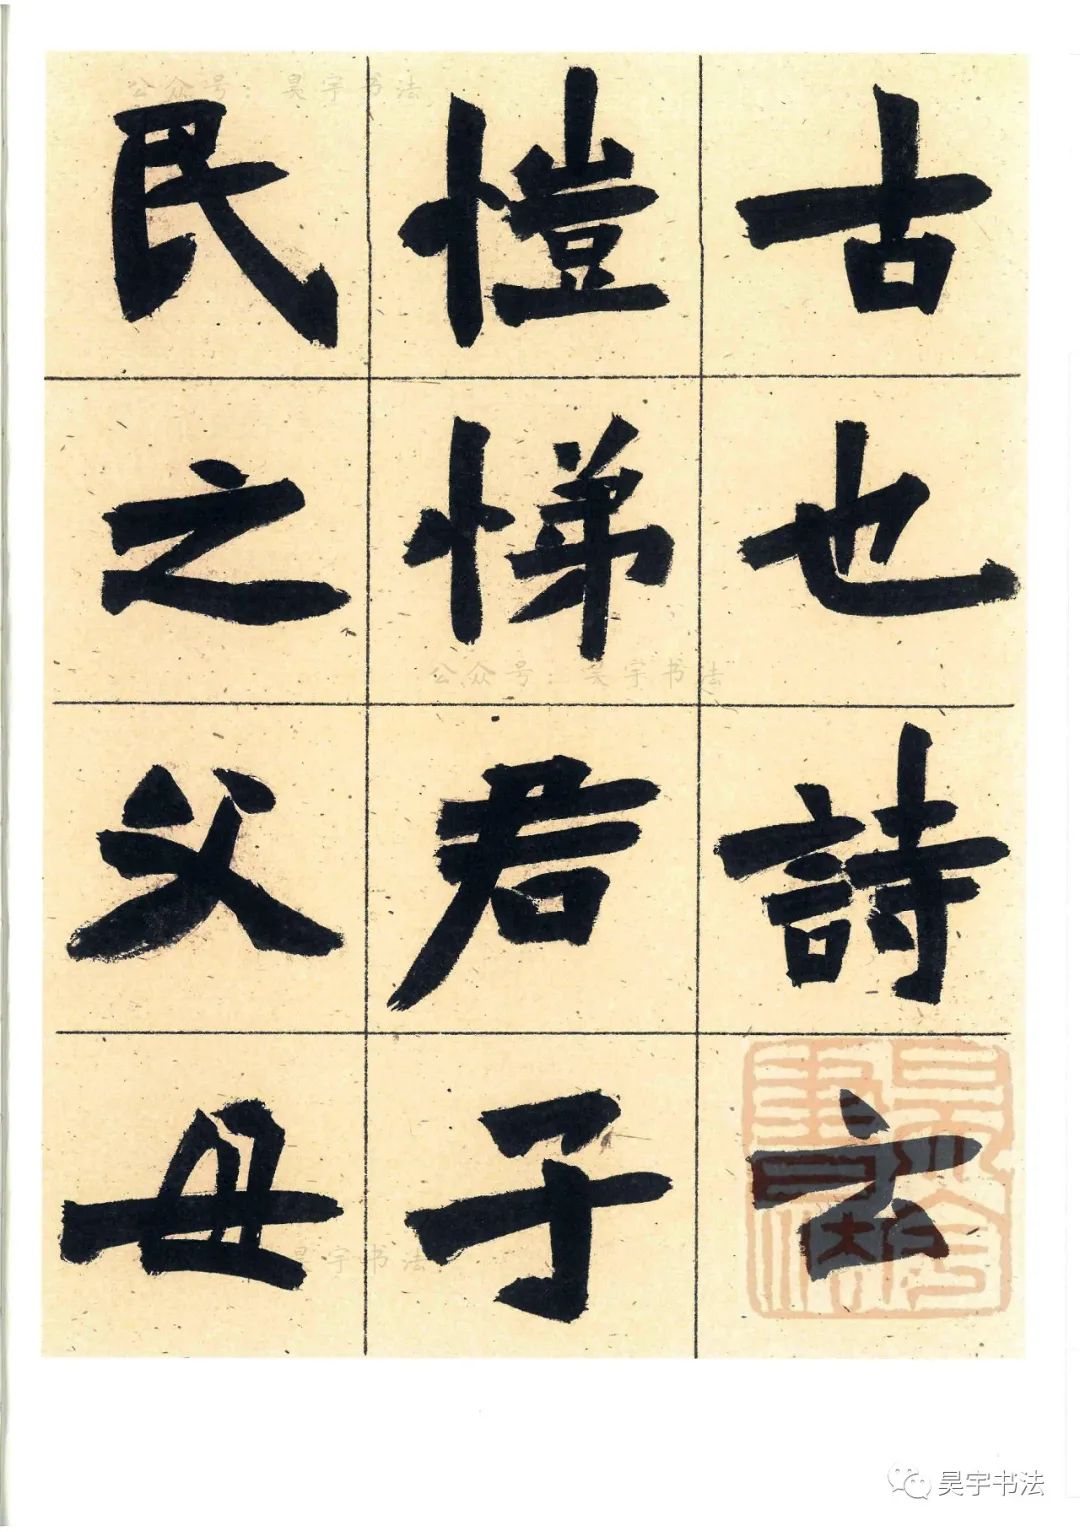 古也詩云
愷悌君子
民之父母
公众号：昊宇书法
公众号：昊宇书法
昊宇书法
昊宇书法